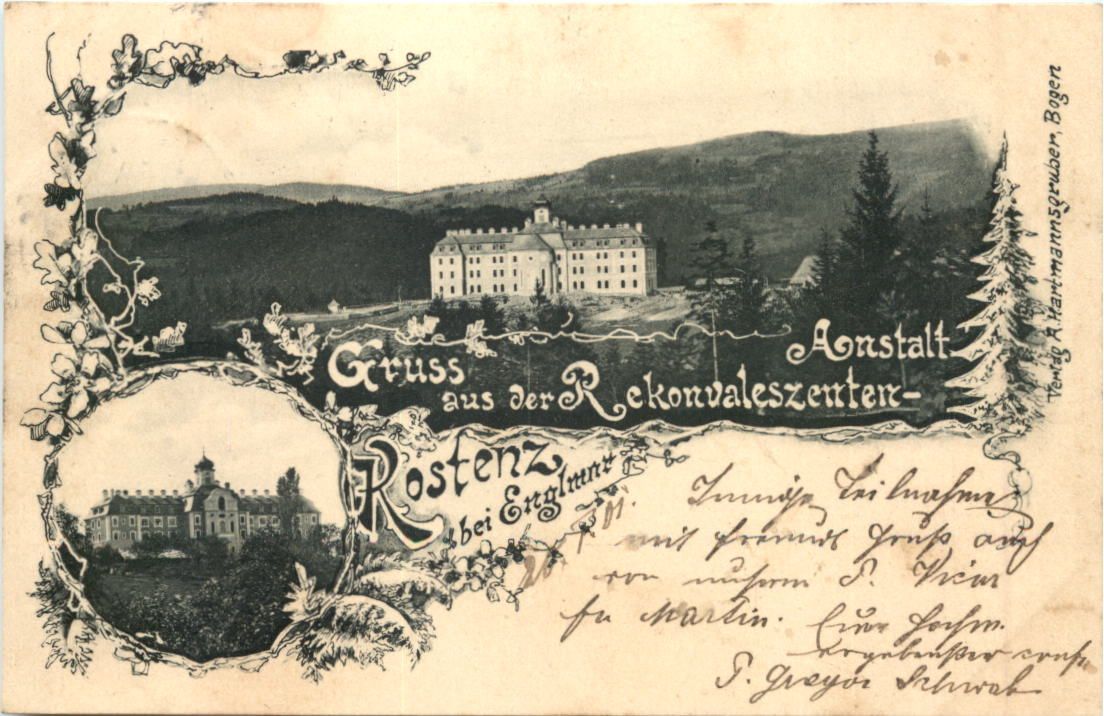 Gruss
aus der Rekonvaleszenten-
Anstalt
Kostenz
bei Englmar
Verlag A. Hartmannsgruber, Bogen
Innige Teilnahme
mit freundl Gruß auch
von unserm P. Vicar
Fr Martin. Euer Hochw.
ergebenster
P. Gregor Schwab